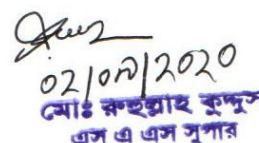 02/07/2020
মোঃ রুহুল্লাহ কুদ্দুস
এস এ এস সুপার